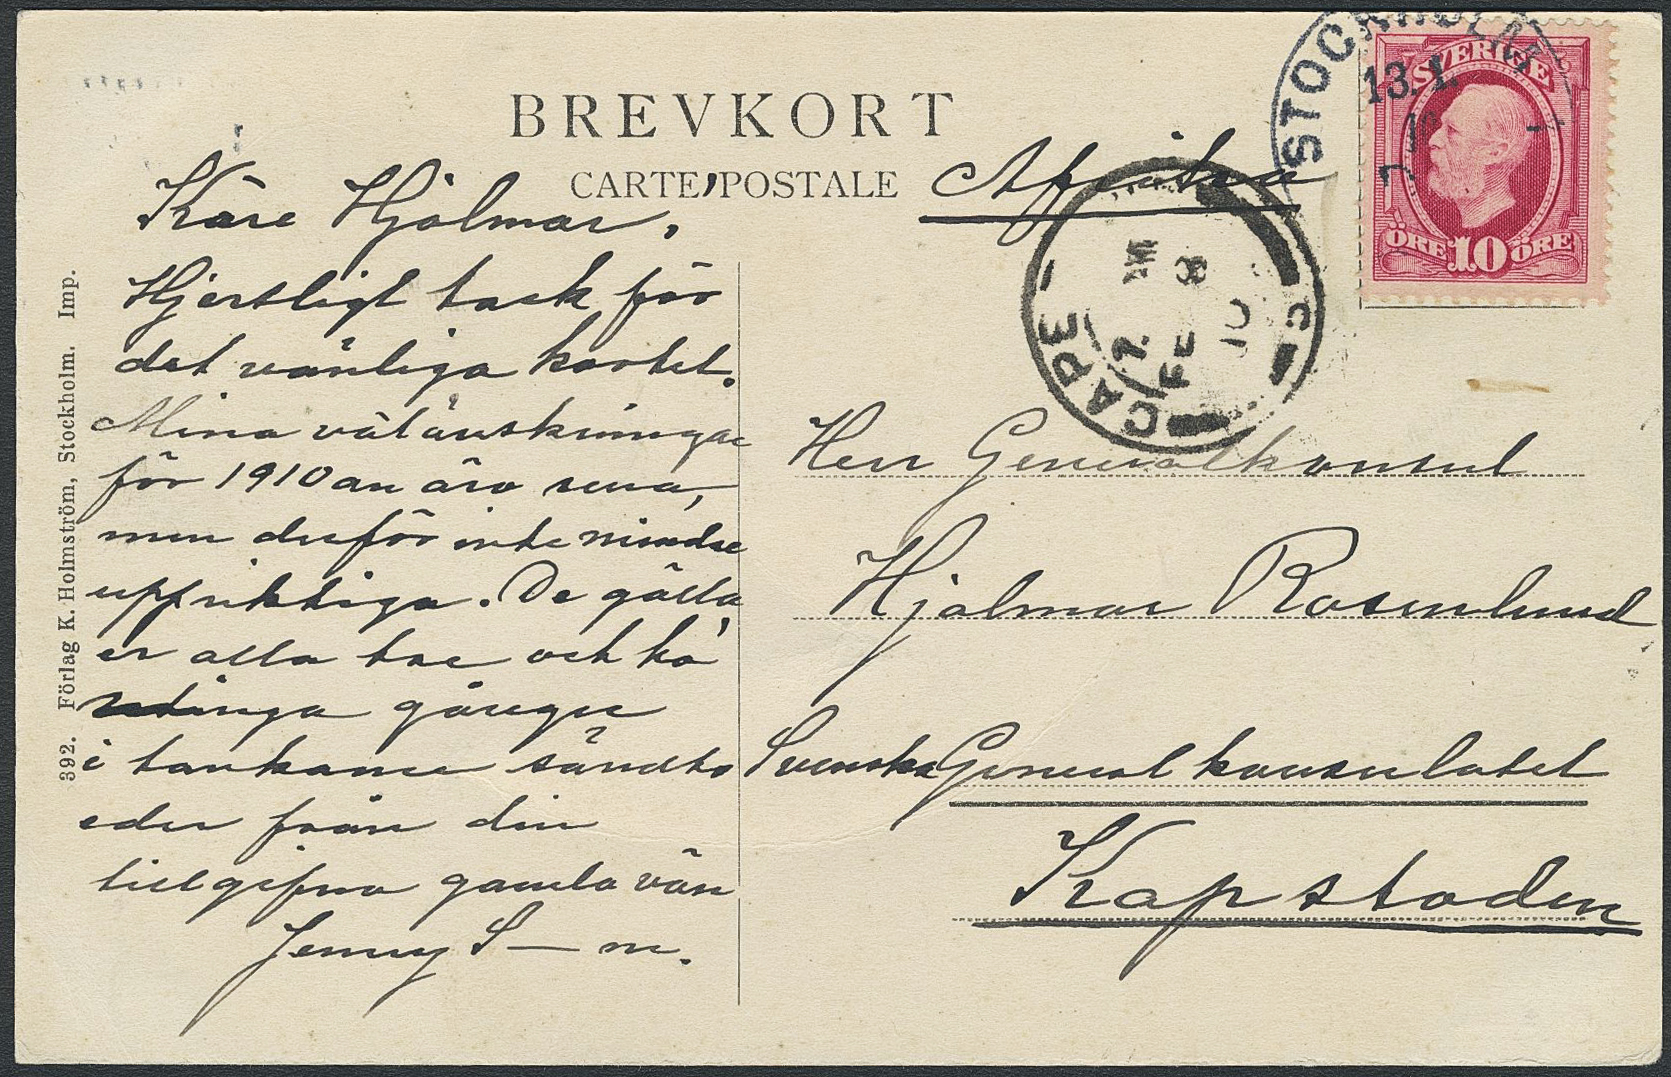 BREVKORT
CARTE POSTALE
Afrika
STOCKHOLM
13.1.
10
SVERIGE
ÖRE 10 ÖRE
CAPE
FE 8
10
Käre Hjalmar,
Hjertligt tack för
det vänliga kortet.
Mina välönskningar
för 1910 an äro sena,
men derför inte mindre
uppriktiga. De gälla
er alla tre och ha
många gånger
i tankarne sändts
eder från din
tillgifna gamla vän
Jenny S—m.
Herr Generalkonsul
Hjalmar Rosenlund
Svenska Generalkonsulatet
Kapstaden
392. Förlag K. Holmström, Stockholm. Imp.